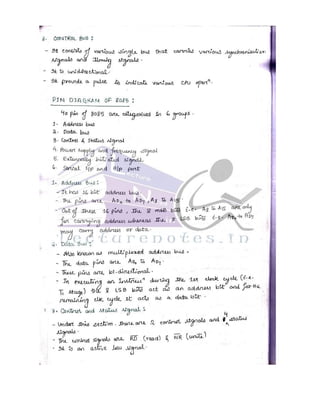 3- CONTROL BUS :
- It consists of various single bus that carries various synchronization
signals and timing signals.
- It is unidirectional.
- It provide a pulse to indicate various CPU opern.
PIN DIAGRAM OF 8085 :
40 pin of 8085 are categorised in 6 groups -
1- Address bus
2- Data bus
3- Control & Status signal
4- Power supply and frequency signal
5- Externally initiated signal.
6- Serial I/P and O/P port
1- Address Bus :
- It has 16 bit address bus.
- The pins are AD0 to AD7, A8 to A15
- Out of these 16 pins, the 8 msb bits i.e. A8 to A15 are only
for carrying address whereas the 8 LSB bits i.e. AD0 to AD7
may carry address or data.
carenotes.in
2- Data Bus :
- Also known as multiplexed address bus.
- The data pins are AD0 to AD7.
- These pins are bi-directional.
- In executing an instruc during the 1st clock cycle (i.e.
T1 stage) 8 LSB bits act as an address bit and for the
remaining clk cycle it acts as a data bit.
3- Control and status signal :
- Under this section, there are 2 control signals and 4 status
signals.
- The control signals are RD (read) & WR (write)
- It is an active low signal.